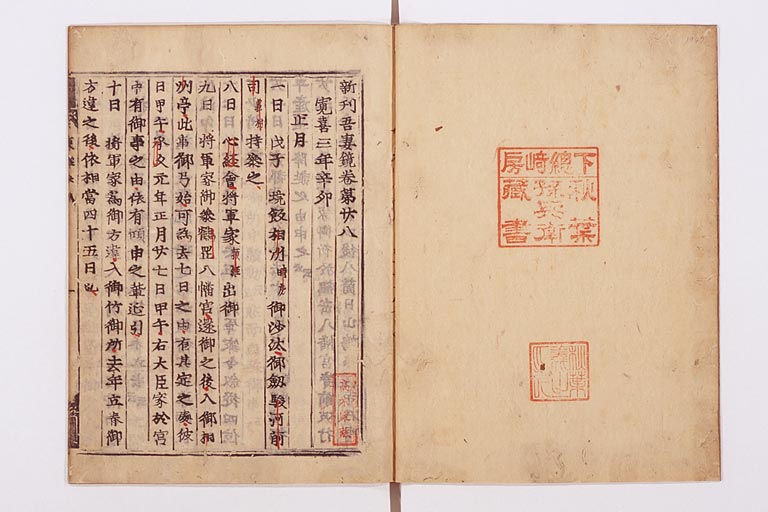 下總崎房
秋葉孫兵衛
藏書
秋葉
義之
新刊吾妻鏡卷第廿八
寛喜三年辛夘
正月
一日 戊子 垸飯相州時房御沙汰御劔駿河前
司義村持參之
八日 心経會將軍家頼経出御
九日 將軍家御參鶴罡八幡宮還御之後入御相
州亭此事御弓始可爲去七日之由有其定之處彼
日甲午承久元年正月廿七日甲午右大臣家於宮
中有御事之由依有傾申之輩延引
十日 將軍家爲御方違入御竹御所去年立春御
方違之後依相當四十五日也